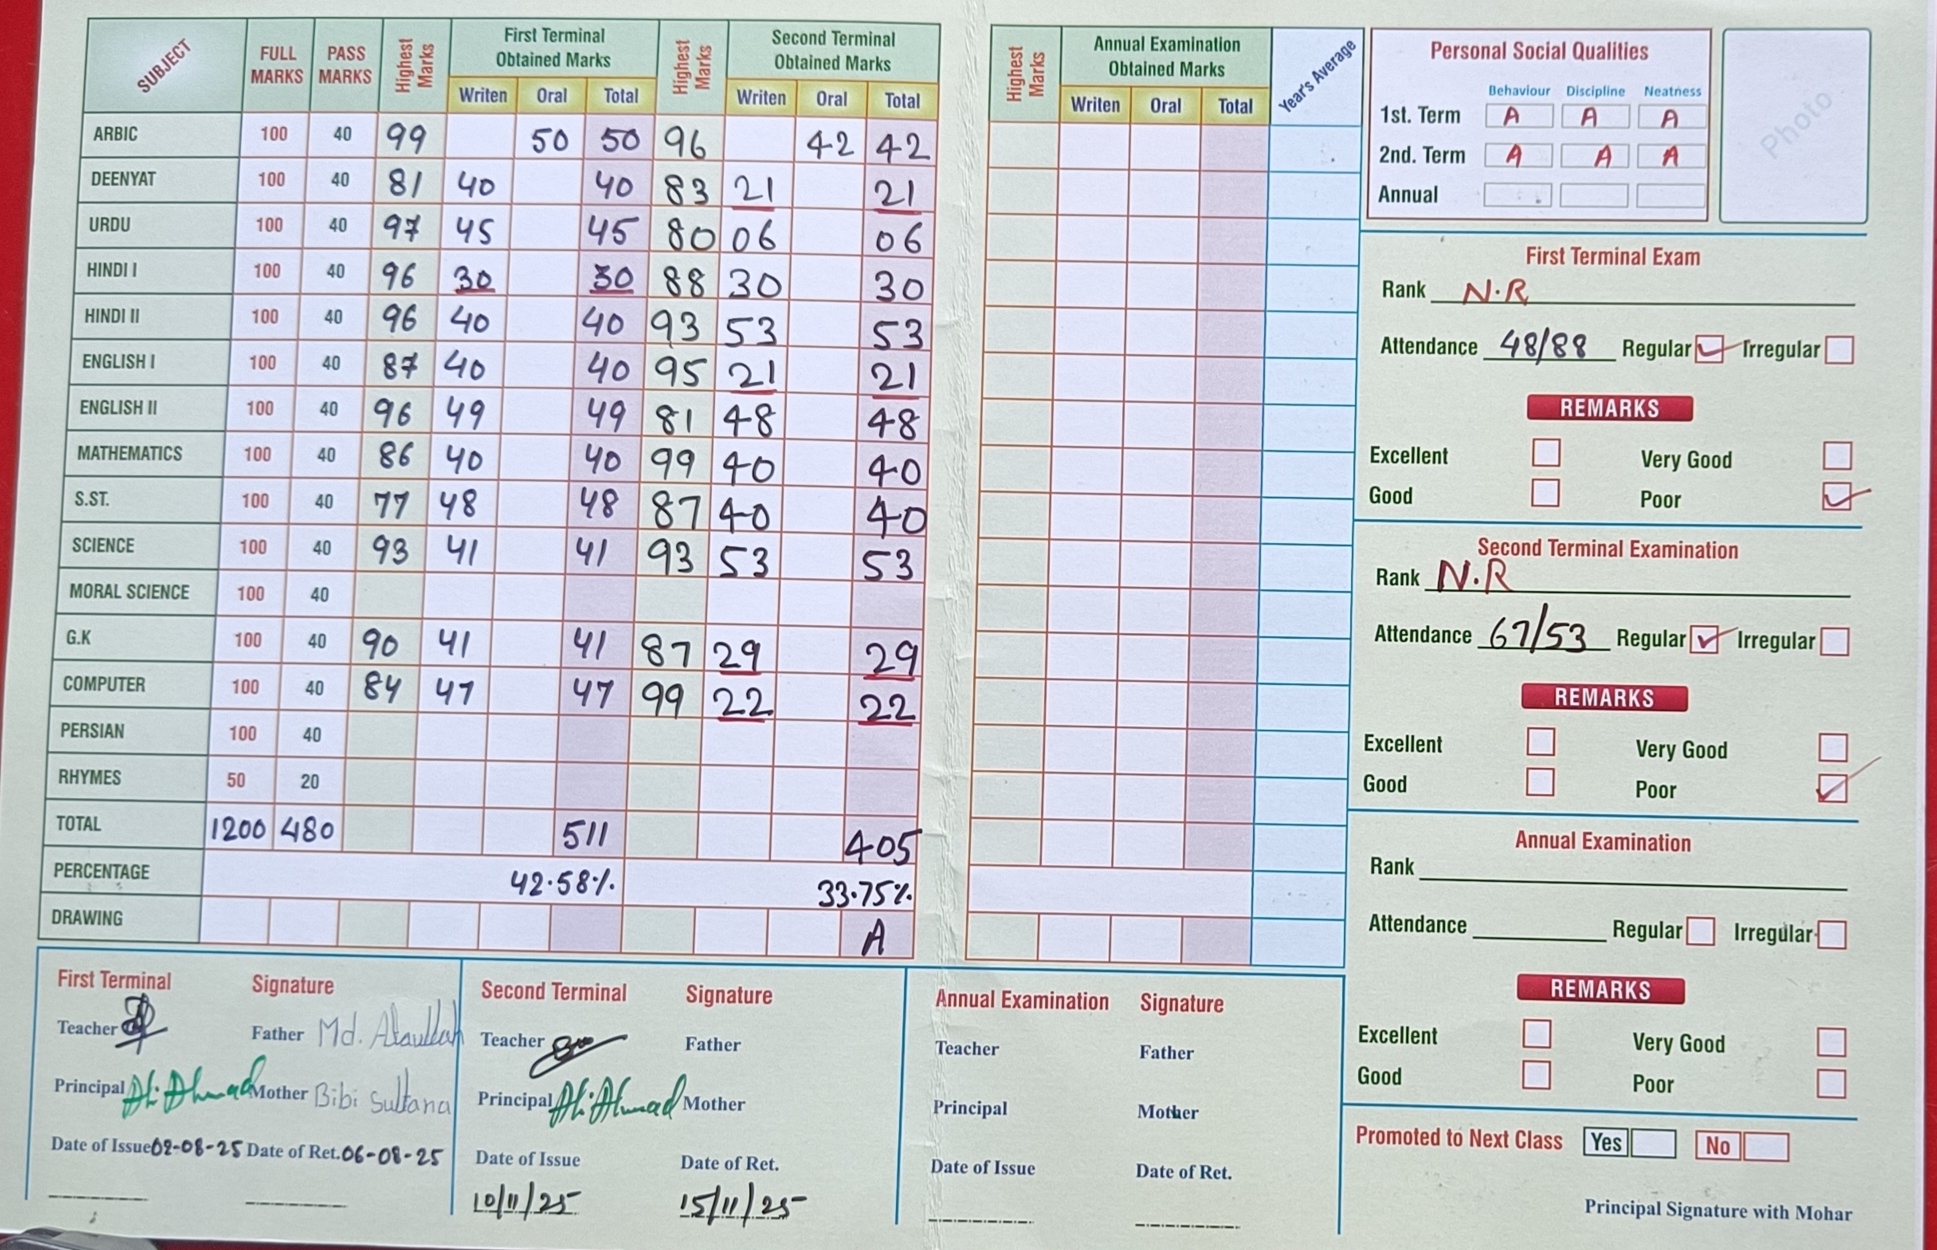 SUBJECT FULL MARKS PASS MARKS Highest Marks First Terminal Obtained Marks Highest Marks Second Terminal Obtained Marks
Writen Oral Total Writen Oral Total
ARBIC 100 40 99 50 50 96 42 42
DEENYAT 100 40 81 40 40 83 21 21
URDU 100 40 97 45 45 80 06 06
HINDI I 100 40 96 30 30 88 30 30
HINDI II 100 40 96 40 40 93 53 53
ENGLISH I 100 40 87 40 40 95 21 21
ENGLISH II 100 40 96 49 49 81 48 48
MATHEMATICS 100 40 86 40 40 99 40 40
S.ST. 100 40 77 48 48 87 40 40
SCIENCE 100 40 93 41 41 93 53 53
MORAL SCIENCE 100 40
G.K 100 40 90 41 41 87 29 29
COMPUTER 100 40 84 47 47 99 22 22
PERSIAN 100 40
RHYMES 50 20
TOTAL 1200 480 511 405
PERCENTAGE 42.58% 33.75%
DRAWING A
First Terminal Signature
Teacher Father Md. Ataullah
Principal Ali Ahmad Mother Bibi Sultana
Date of Issue 02-08-25 Date of Ret. 06-08-25
Second Terminal Signature
Teacher Father
Principal Ali Ahmad Mother
Date of Issue Date of Ret.
10/11/25 15/11/25
Highest Marks Annual Examination Obtained Marks Year's Average
Writen Oral Total
Annual Examination Signature
Teacher Father
Principal Mother
Date of Issue Date of Ret.
Personal Social Qualities
Behaviour Discipline Neatness
1st. Term A A A
2nd. Term A A A
Annual
Photo
First Terminal Exam
Rank N.R
Attendance 48/88 Regular Irregular
REMARKS
Excellent Very Good
Good Poor
Second Terminal Examination
Rank N.R
Attendance 67/53 Regular Irregular
REMARKS
Excellent Very Good
Good Poor
Annual Examination
Rank
Attendance Regular Irregular
REMARKS
Excellent Very Good
Good Poor
Promoted to Next Class Yes No
Principal Signature with Mohar